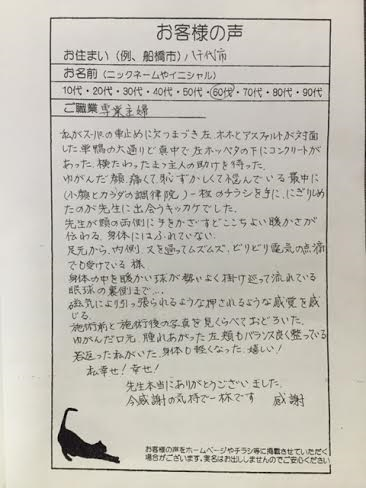 お客様の声
お住まい（例、船橋市）八千代市
お名前（ニックネームやイニシャル）
10代・20代・30代・40代・50代・60代・70代・80代・90代
ご職業 専業主婦
私がスーパーの車止めに欠つまづき左、ホホとアスファルトが対面
した。巣鴨の大通りど真中で左ホッペタの下にコンクリートが
あった。横たわったまっ主人の助けを待った。
ゆがんだ顔、痛くて、恥ずかしくて悩んでいる最中に
（小顔とカラダの調律院）一枚のチラシを手に、にぎりしめ
たのが先生に出会うキッカケでした。
先生が頭の両側に手をかざすとここちよい暖かさが
伝わる。身体にはふれていない。
足元から、内側、又を通ってムズムズ、ビリビリ電気の点滴
でも受けている様
身体の中を暖かい球が勢いよく掛け巡って流れている
眼球の裏側まで…
磁気により引っ張られるような押されるような感覚を感
じる。
施術前と施術後の写真を見くらべておどろいた。
ゆがんだ口元、腫れあがった左頬もバランス良く整っている
若返った私がいた。身体も軽くなった。嬉しい！
私幸せ！幸せ！
先生本当にありがとうございました。
今感謝の気持で一杯です 感謝
お客様の声をホームページやチラシ等に掲載させていただく
場合がございます。実名はお出ししませんのでご安心ください